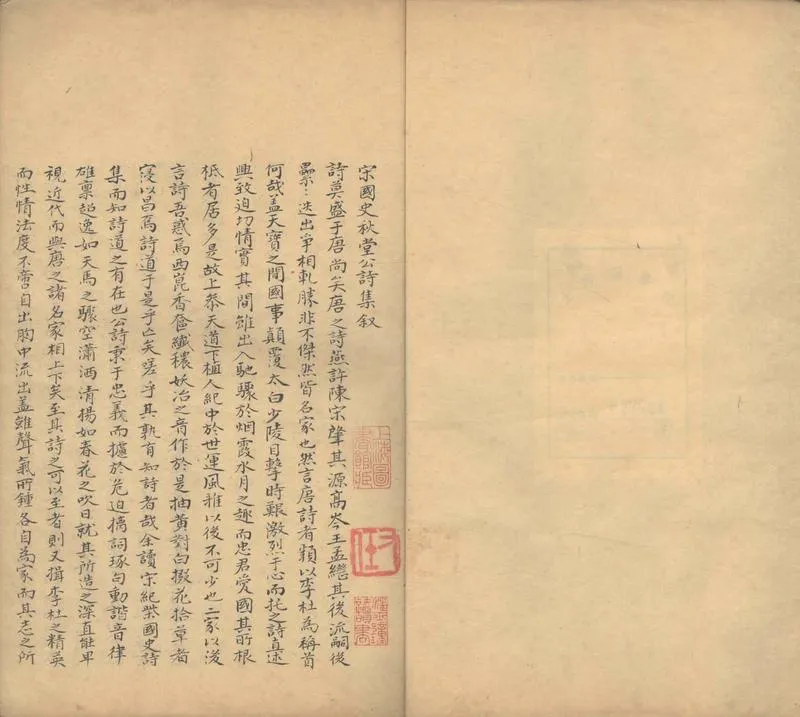 宋國史秋堂公詩集叙
詩莫盛于唐尚矣唐之詩燕許陳宋肇其源高岑王孟繼其後流嗣後
纍〻迭出爭相軋勝非不傑然皆名家也然言唐詩者類以李杜為稱首
何哉盖天寶之間國事顛覆太白少陵目擊時艱激烈于心而托之詩直述
興致迫切情實其間雖出入馳驟於烟霞水月之趣而忠君愛國其所根
柢者居多是故上叅天道下植人紀中於世運風雅以後不可少也二家以後
言詩吾惑焉西崑香奩纖穠妖冶之音作於是抽黃對白掇花拾草者
寖以昌焉詩道于是乎亡矣嗟乎其孰有知詩者哉余讀宋紀柴國史詩
集而知詩道之有在也公詩秉于忠義而攄於危迫摛詞琢句動諧音律
雄禀超逸如天馬之驟空瀟洒清揚如春花之吹日就其所造之深直能卑
視近代而與唐之諸名家相上下矣至其詩之可以至者則又揖李杜之精英
而性情法度不啻自出胸中流出盖雖聲氣所鍾各自為家而其志之所
上海圖書館藏